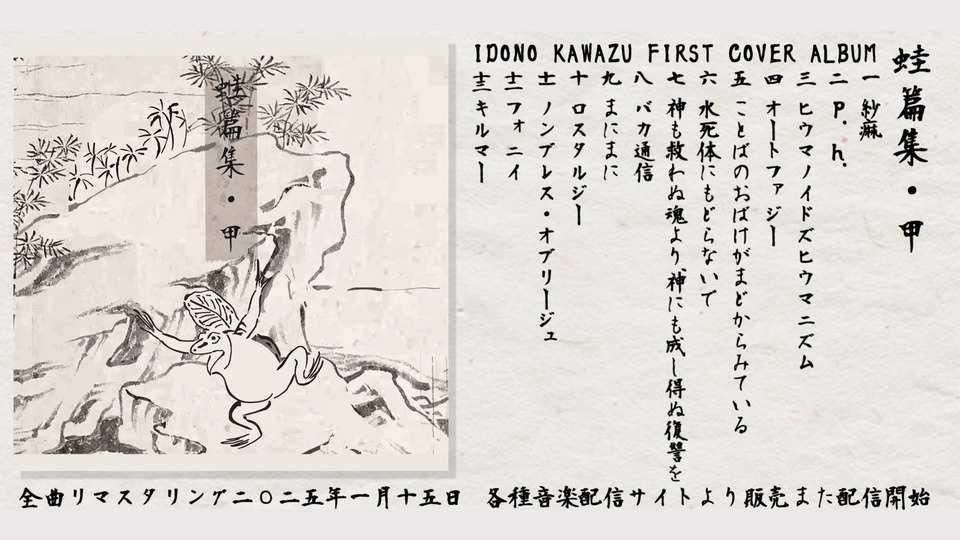 蛙篇集・甲
IDONO KAWAZU FIRST COVER ALBUM
蛙篇集・甲
一 紗痲
二 P. h.
三 ヒウマノイドズヒウマニズム
四 オートファジー
五 ことばのおばけがまどからみている
六 水死体にもどらないで
七 神も救わぬ魂より、神にも成し得ぬ復讐を
八 バカ通信
九 まにまに
十 ロスタルジー
十一 ノンブレス・オブリージュ
十二 フォニイ
十三 キルマー
全曲リマスタリング二〇二五年一月十五日 各種音楽配信サイトより販売また配信開始